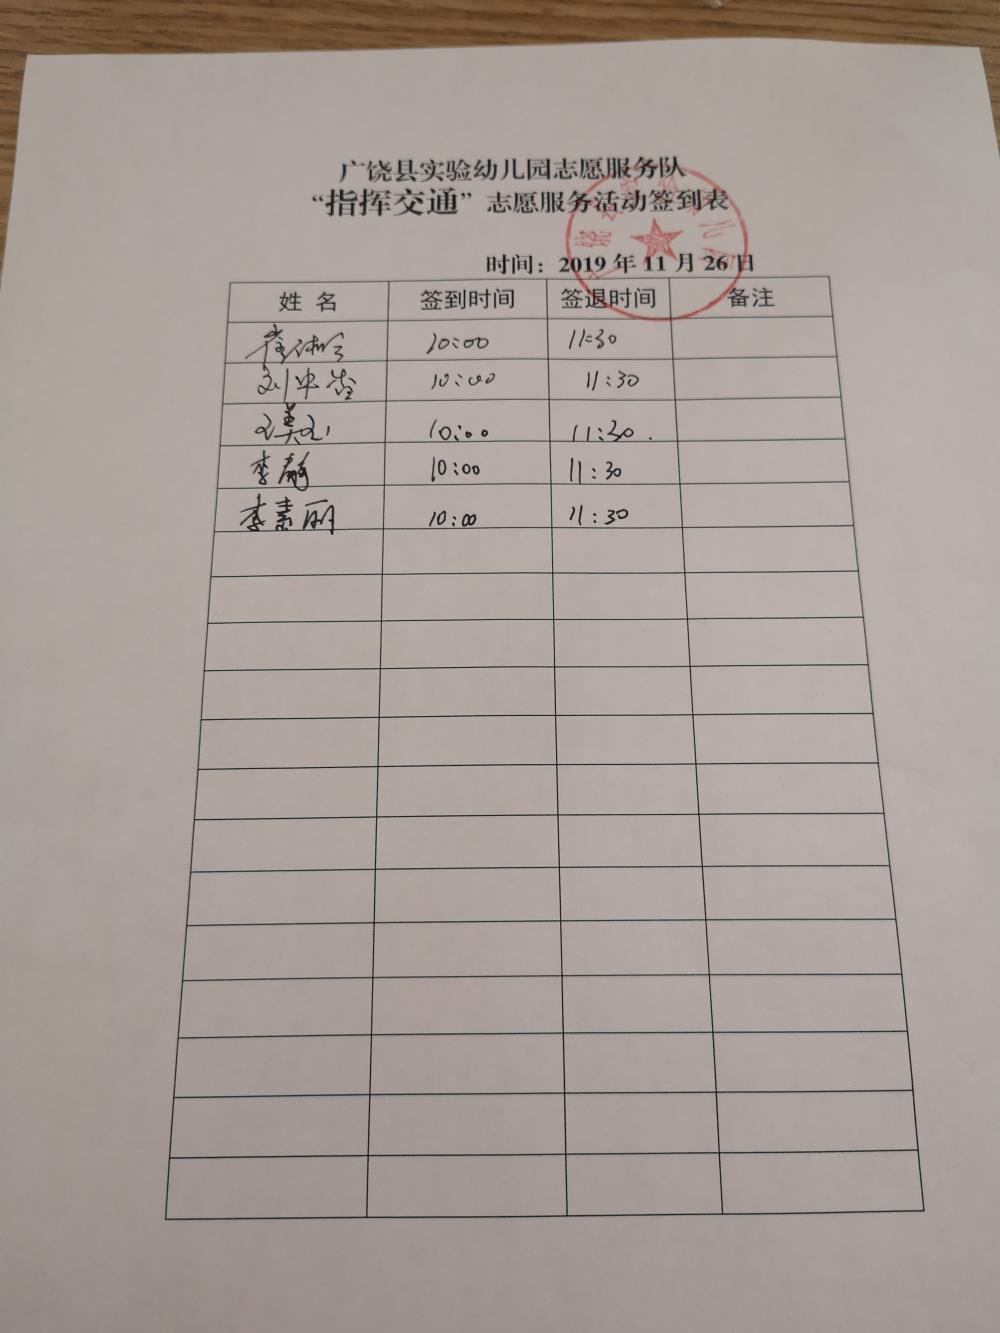 广饶县实验幼儿园志愿服务队
“指挥交通”志愿服务活动签到表
时间：2019年11月26日
姓 名 签到时间 签退时间 备注
10:00 11:30
10:00 11:30
10:00 11:30
李静 10:00 11:30
李素丽 10:00 11:30